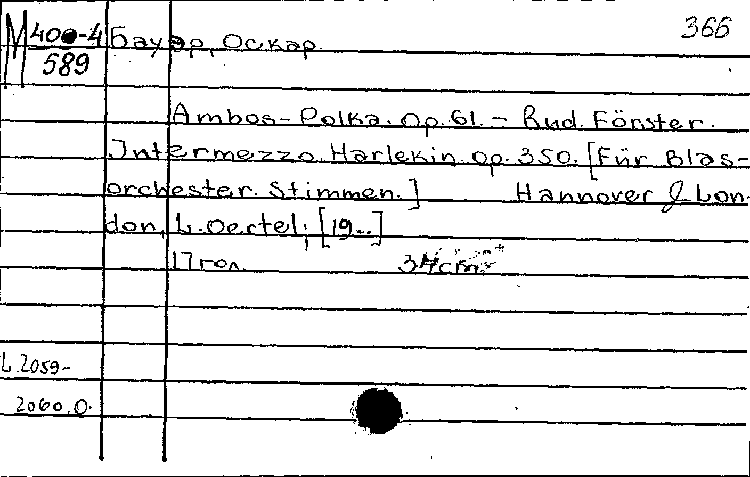 366
М 400-4
589
Бауэр, Оскар
Ambos-Polka. Op. 61. - Rud. Förster.
Intermezzo Harlekin op. 350. [Für Blas-
orchester. Stimmen.] Hannover & Lon-
don, L. Oertel; [19..]
17 гол. 34cm
L. 2059-
2060. O.